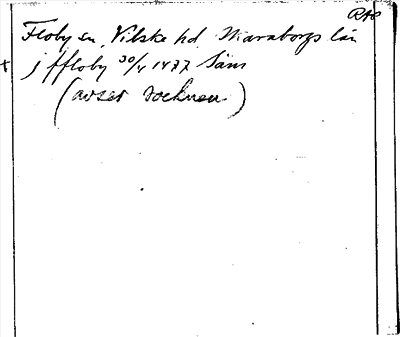 RAP
Floby sn, Vilske hd. Skaraborgs län
j ffloby 30/4 1477 Säm
(avser socknen)